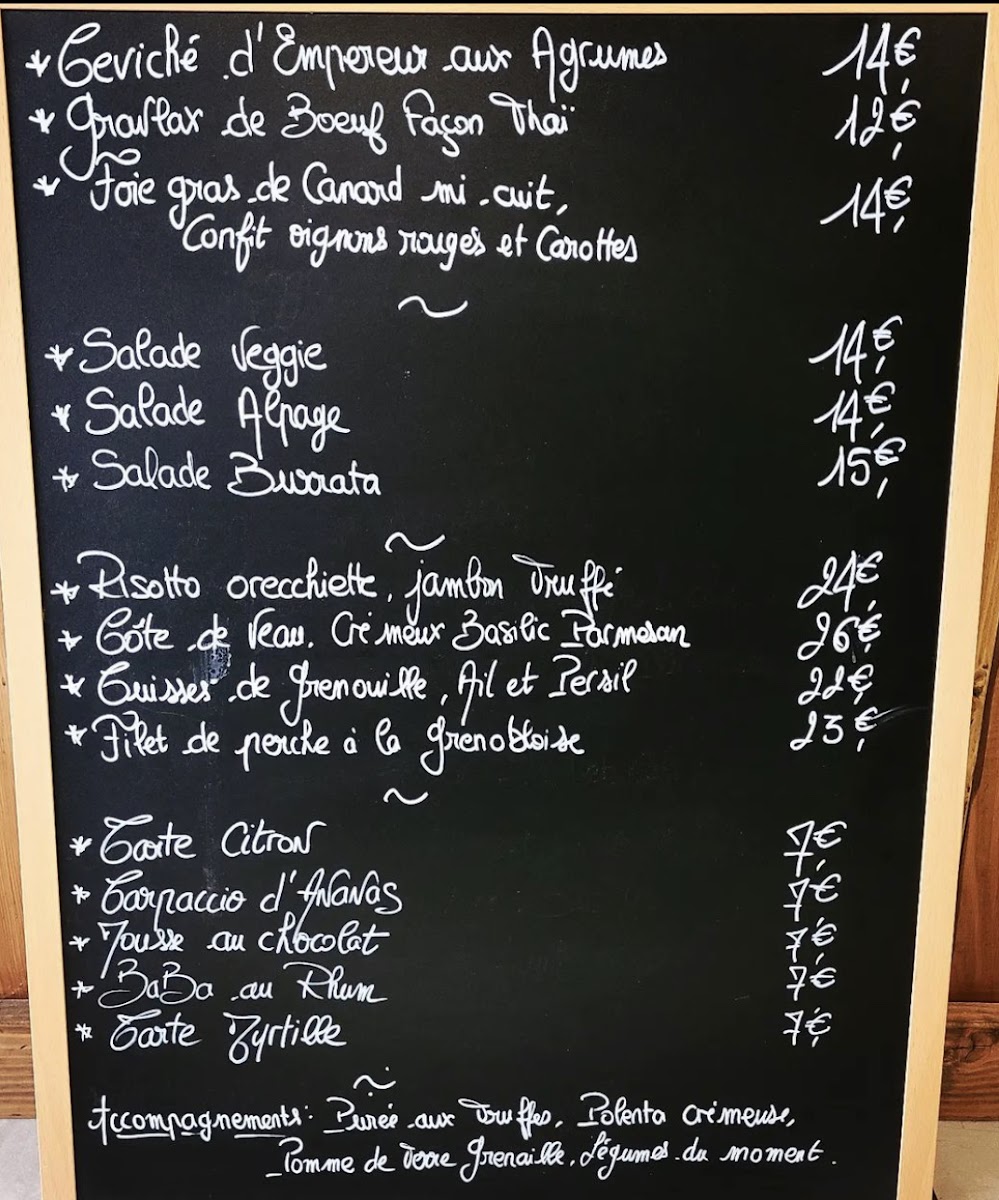 * Ceviché d'Empereur aux Agrumes 14€
* Gravlax de Boeuf Façon Thaï 12€
* Foie gras de Canard mi-cuit, 14€
Confit oignons rouges et Carottes
~
* Salade Veggie 14€
* Salade Alpage 14€
* Salade Burrata 15€
~
* Risotto orecchiette, jambon Truffé 24€
* Côte de Veau, Crémeux Basilic Parmesan 26€
* Cuisses de Grenouille, Ail et Persil 22€
* Filet de perche à la Grenobloise 23€
~
* Tarte Citron 7€
* Carpaccio d'Ananas 7€
* Mousse au chocolat 7€
* BaBa au Rhum 7€
* Tarte Myrtille 7€
~
Accompagnements: Purée aux Truffes, Polenta crémeuse,
Pomme de Terre Grenaille, Légumes du moment.